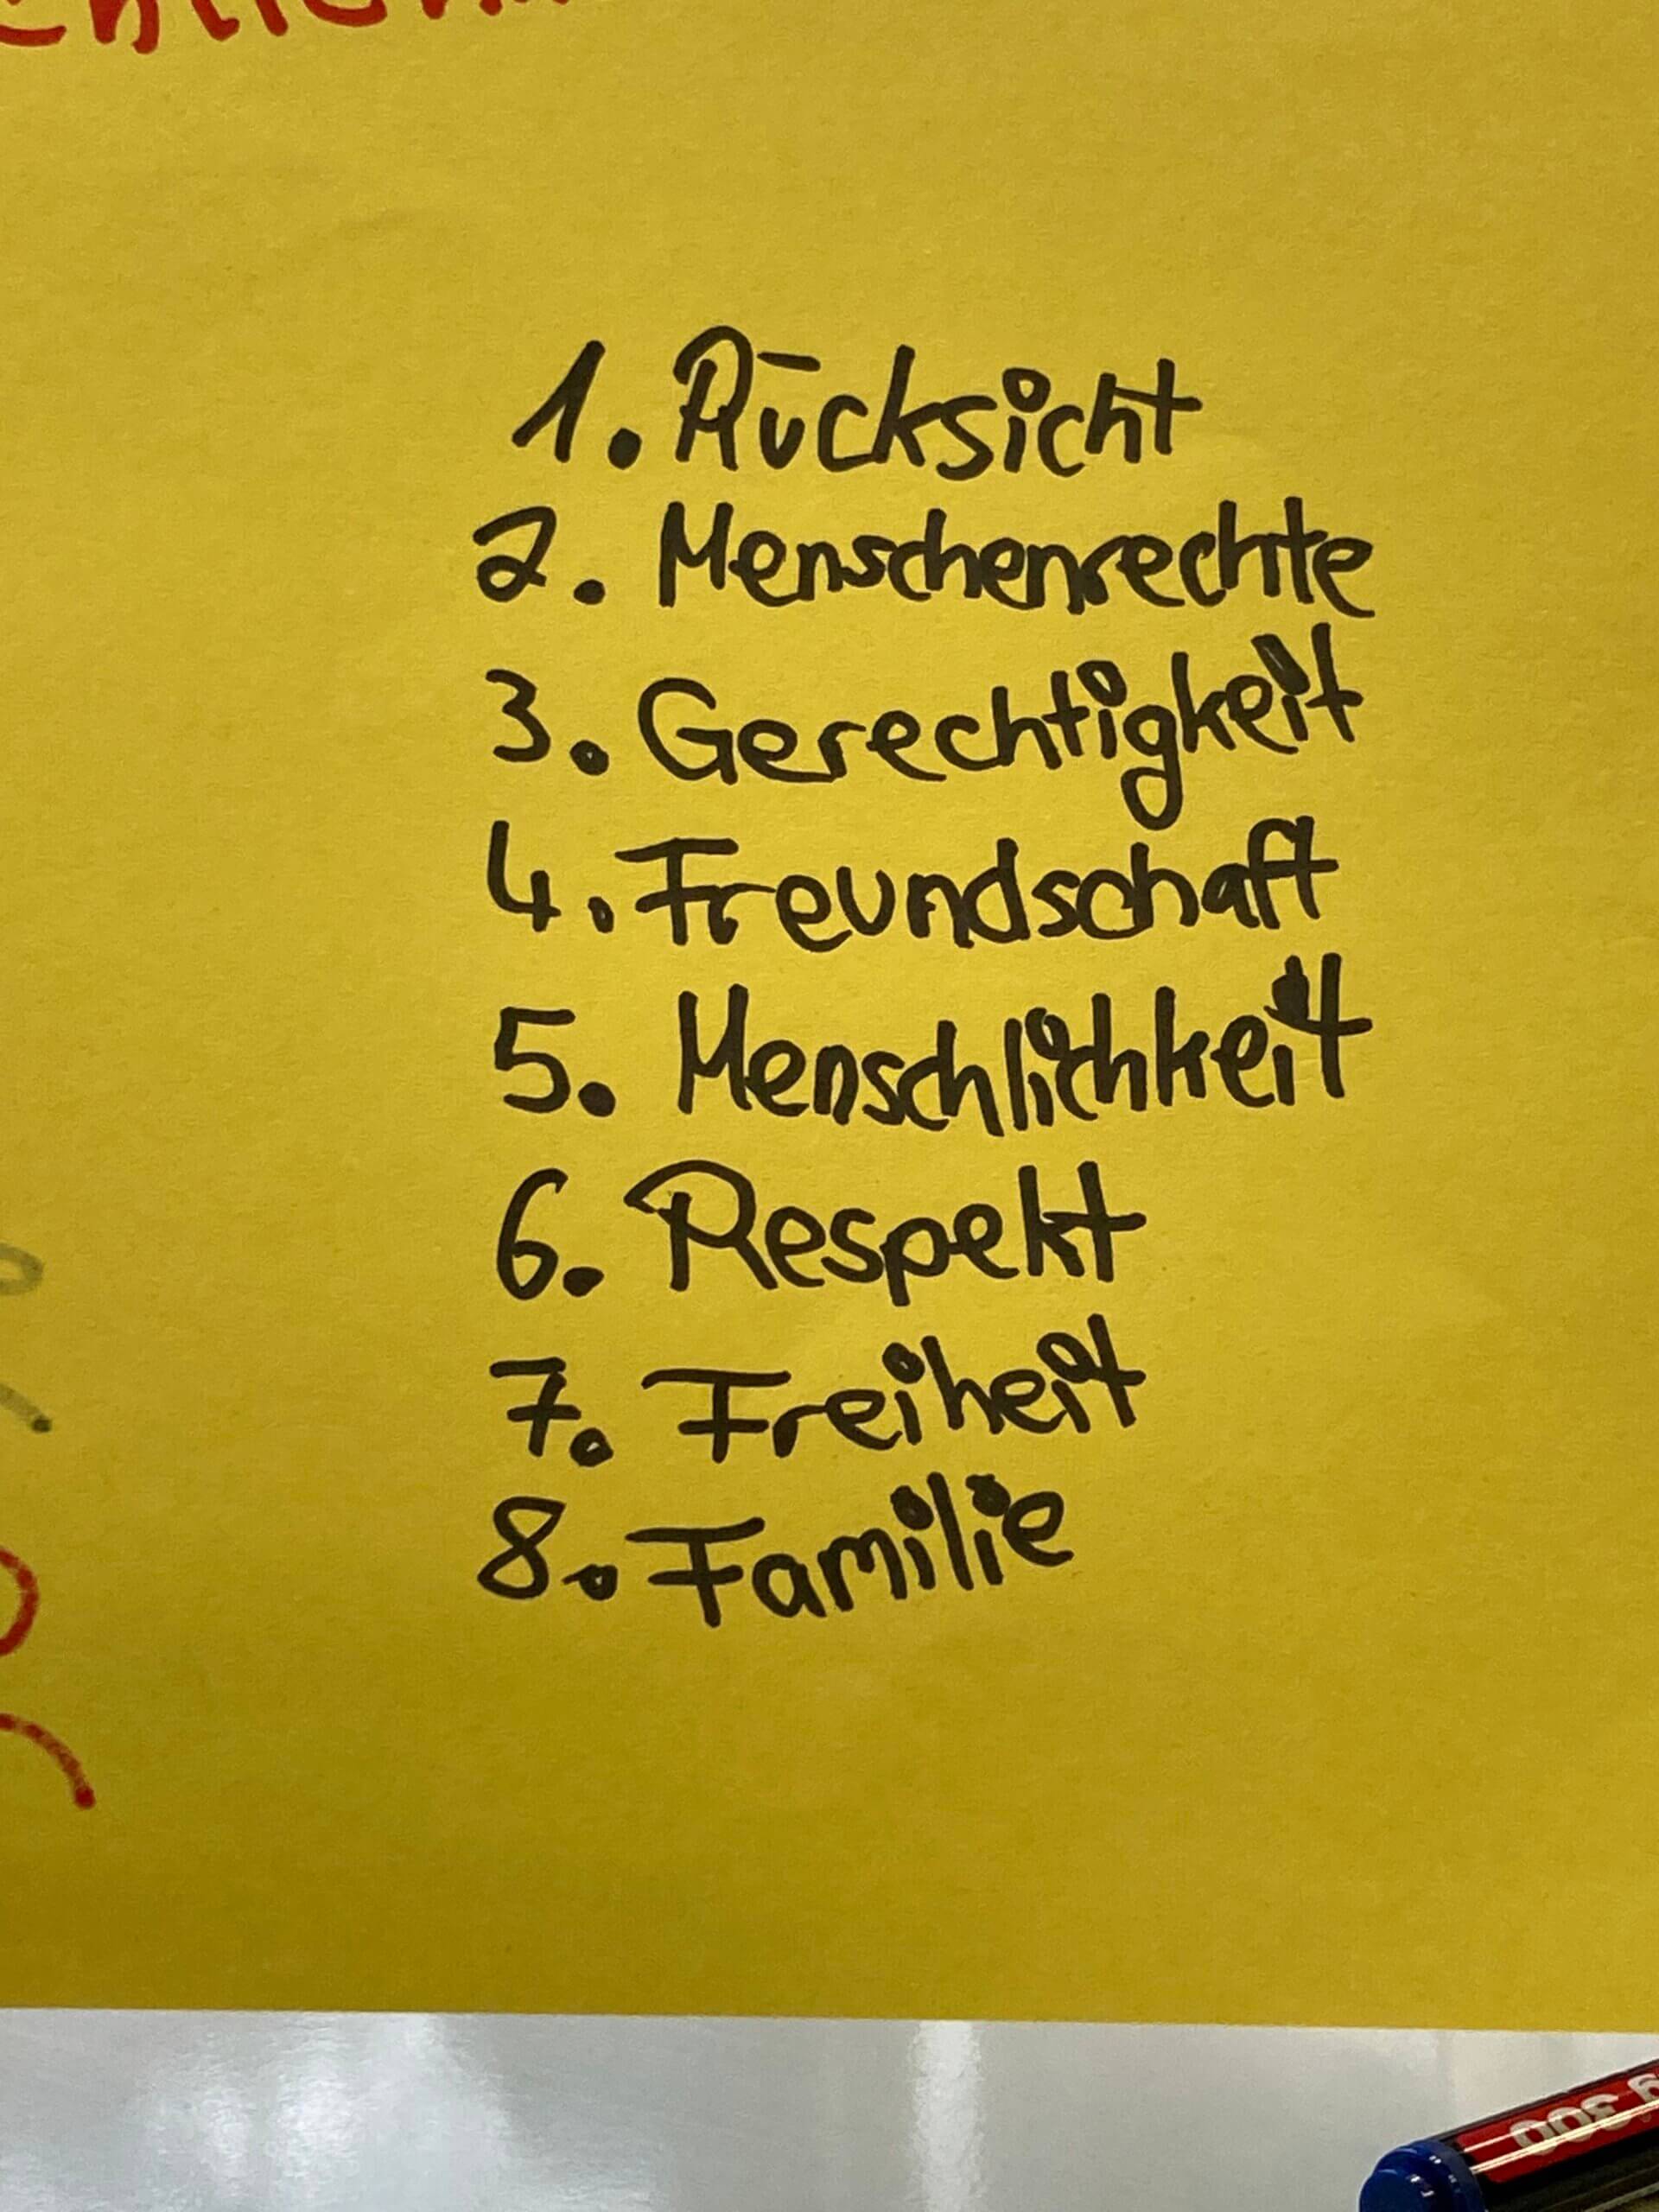 1. Rücksicht
2. Menschenrechte
3. Gerechtigkeit
4. Freundschaft
5. Menschlichkeit
6. Respekt
7. Freiheit
8. Familie
300